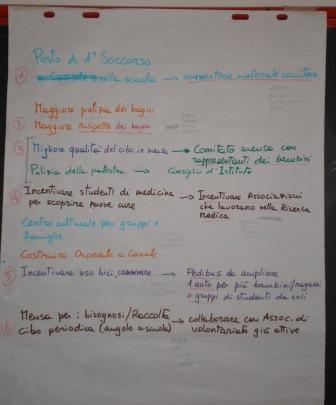 Posto di 1° Soccorso
1 nella scuola → aumentare materiale sanitario
Maggiore pulizia dei bagni
2 Maggiore rispetto dei bagni
3 Migliore qualità del cibo in mensa → Comitato mensa con
rappresentanti dei bambini
Pulizia della palestra → Consiglio d'Istituto
4 Incentivare studenti di medicina → Incentivare Associazioni
per scoprire nuove cure che lavorano nella Ricerca
medica
Centro culturale per gruppi e
famiglie
Costruire Ospedale a Casale
5 Incentivare uso bici, camminare → Pedibus da ampliare
1 auto per più bambini/ragazzi
o gruppi di studenti da soli
Mensa per i bisognosi/Raccolta → collaborare con Assoc. di
6 cibo periodica (angolo a scuola) volontariato già attive